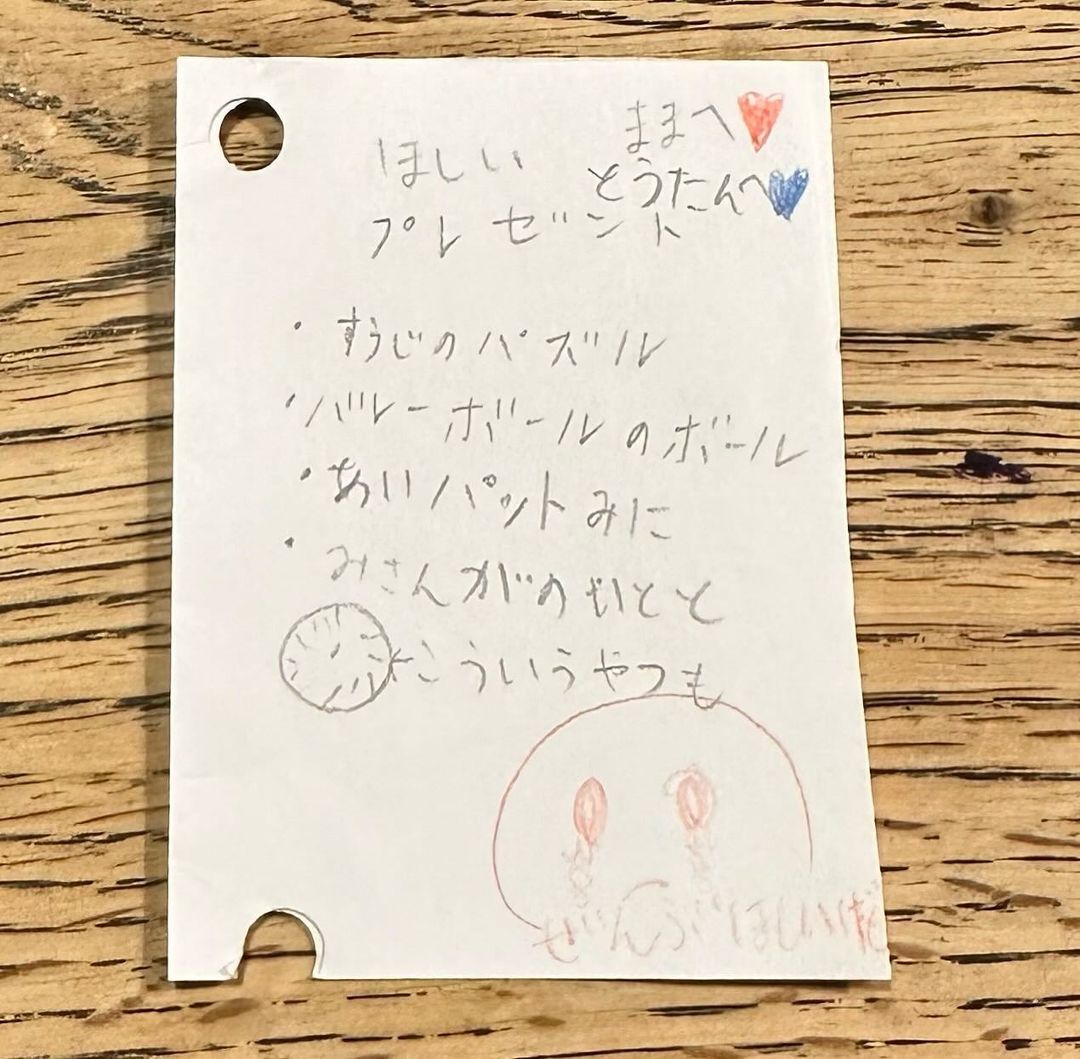 ままへ
とうたんへ
ほしい
プレゼント
・すうじのパズル
・バレーボールのボール
・あいパットみに
・みさんがのいとと
こういうやつも
ぜんぶほしいよ